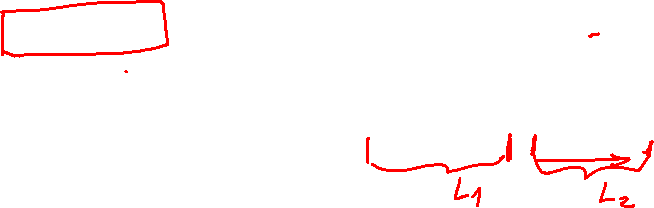 L1 L2